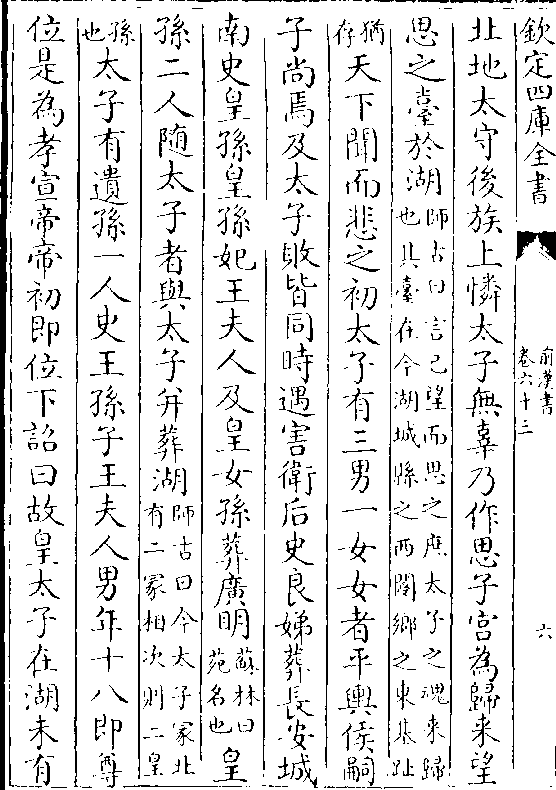 欽定四庫全書
前漢書
卷六十三
六
北地太守後族上憐太子無辜乃作思子宫為歸来望
思之臺於湖師古曰言己望而思之庶太子之魂来歸
也其臺在今湖城縣之西閿鄉之東基趾
猶
存天下聞而悲之初太子有三男一女女者平輿侯嗣
子尚焉及太子敗皆同時遇害衛后史良娣葬長安城
南史皇孫皇孫妃王夫人及皇女孫葬廣明蘇林曰
苑名也皇
孫二人隨太子者與太子并葬湖師古曰今太子冢北
有二冢相次則二皇
孫
也太子有遺孫一人史王孫子王夫人男年十八即尊
位是為孝宣帝帝初即位下詔曰故皇太子在湖未有